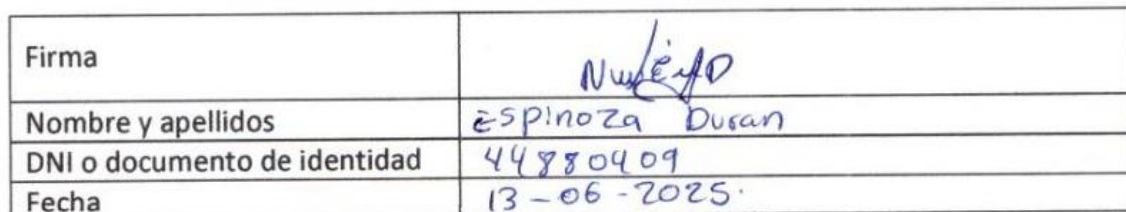 Firma
Nombre y apellidos Espinoza Duran
DNI o documento de identidad 44880409
Fecha 13-06-2025.